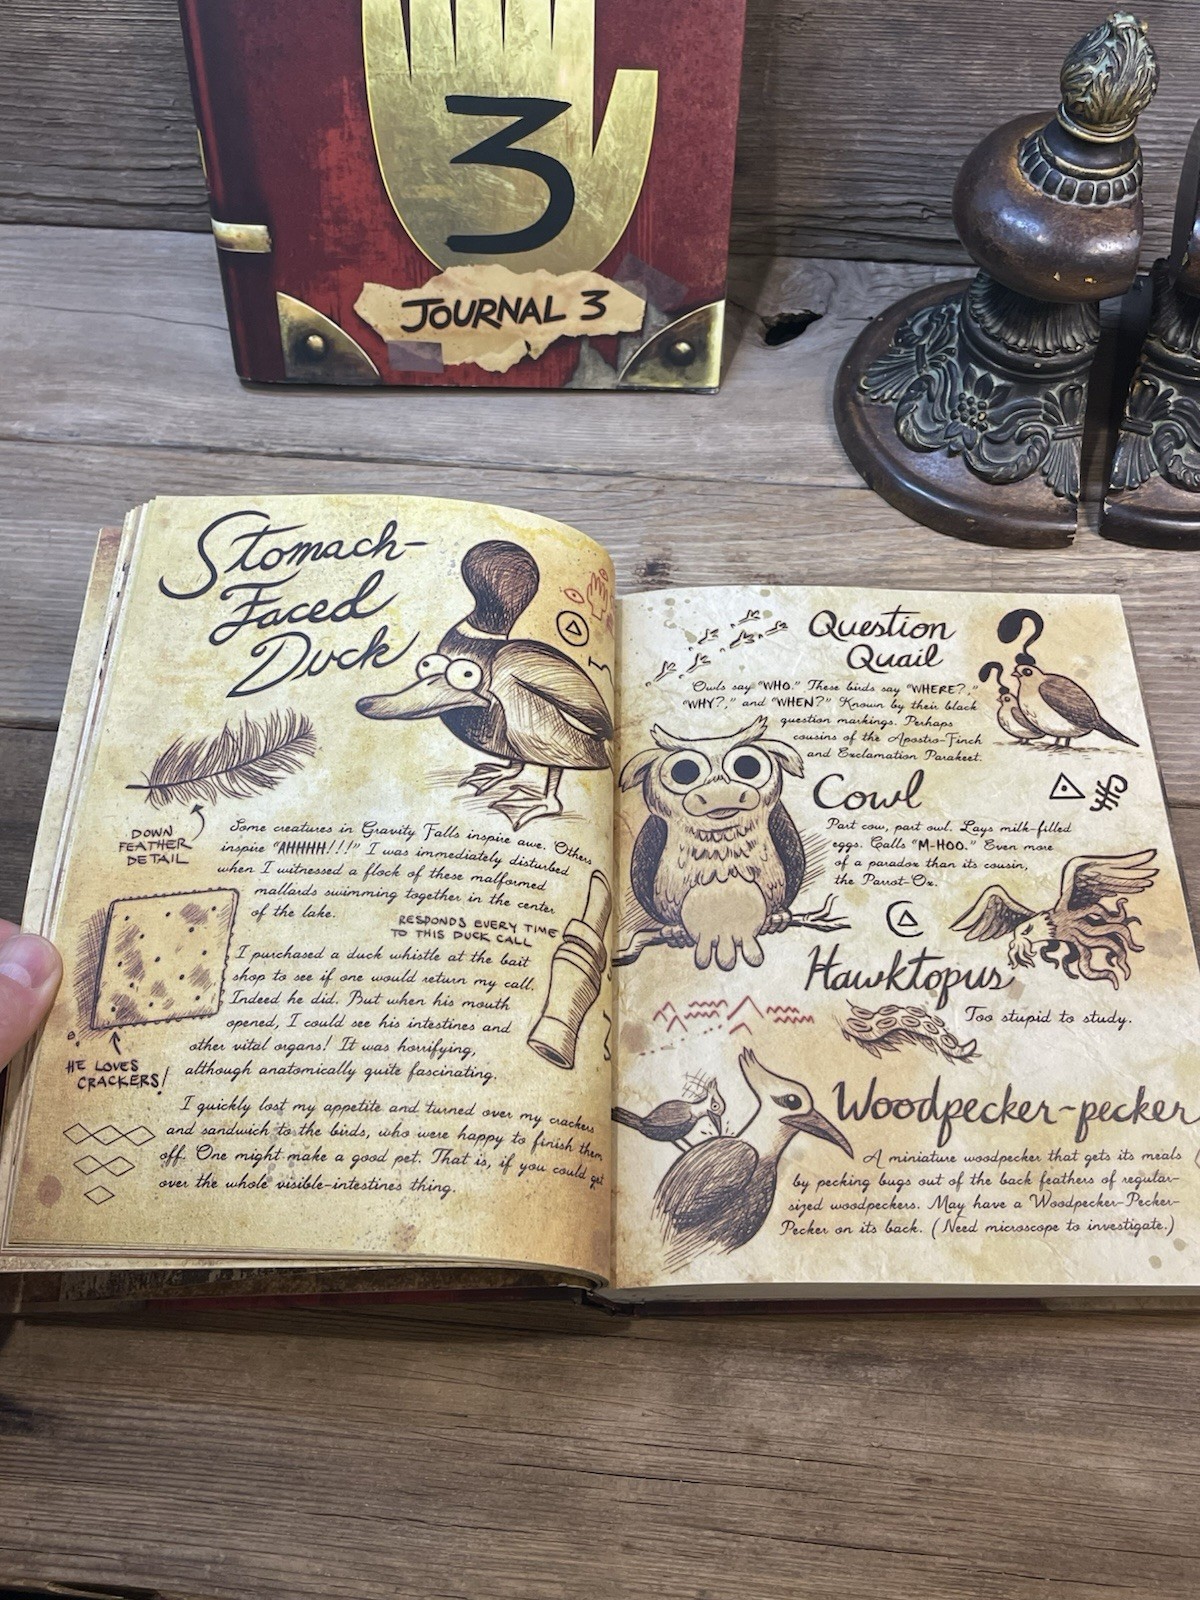 3
JOURNAL 3
Stomach-
Faced
Duck
DOWN
FEATHER
DETAIL
Some creatures in Gravity Falls inspire awe. Others
inspire "AHHHH!!!" I was immediately disturbed
when I witnessed a flock of these malformed
mallards swimming together in the center
of the lake.
RESPONDS EVERY TIME
TO THIS DUCK CALL
I purchased a duck whistle at the bait
shop to see if one would return my call.
Indeed he did. But when his mouth
opened, I could see his intestines and
other vital organs! It was horrifying,
although anatomically quite fascinating.
HE LOVES
CRACKERS!
I quickly lost my appetite and turned over my crackers
and sandwich to the birds, who were happy to finish them
off. One might make a good pet. That is, if you could get
over the whole visible-intestines thing.
Question
Quail
Owls say "WHO." These birds say "WHERE?,"
"WHY?," and "WHEN?" Known by their black
question markings. Perhaps
cousins of the Apostro-Finch
and Exclamation Parakeet.
Cowl
Part cow, part owl. Lays milk-filled
eggs. Calls "M-HOO." Even more
of a paradox than its cousin,
the Parrot-Ox.
Hawktopus
Too stupid to study.
Woodpecker-pecker
A miniature woodpecker that gets its meals
by pecking bugs out of the back feathers of regular-
sized woodpeckers. May have a Woodpecker-Pecker-
Pecker on its back. (Need microscope to investigate.)